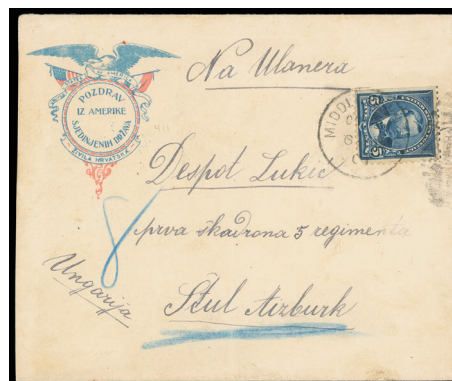 POZDRAV
IZ AMERIKE
SJEDINJENIH DRŽAVA
ŽIVILA HRVATSKA
Na Ulanera
MIDDL
5 5
Despot Lukić
prva škadrona 5 regimenta
8
Ungarija
Štul Aizburk